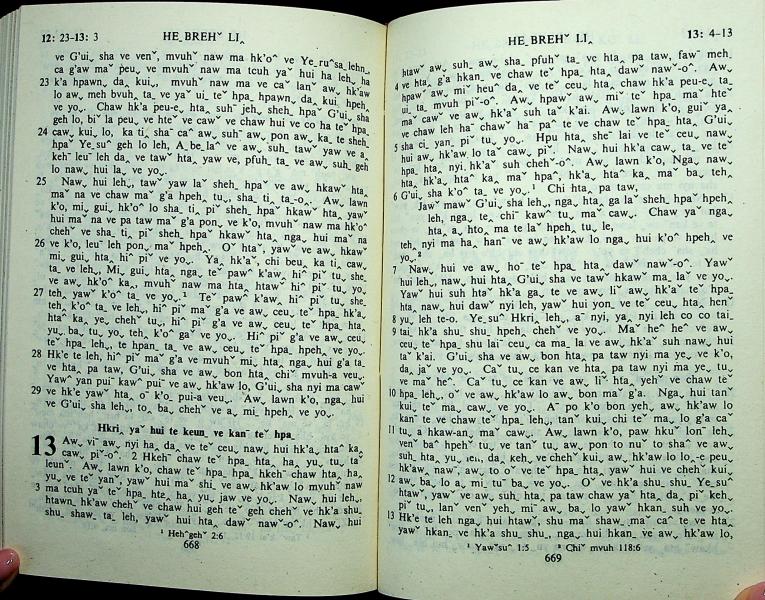 12: 23-13: 3 HE_BREHˇ LI‸
ve G'ui˰ sha ve venˇ, mvuhˇ naw ma hk'o^ ve Ye_ruˆsa_lehn_
ca g'aw maˇ peu˰ ve mvuhˇ naw ma tcuh yaˇ hui ha leh˰ ha
23 k'a hpawn˰ da˰ kui˰, mvuhˇ naw ma ve caˇ lanˇ aw˰ hk'aw
lo aw˰ meh bvuh˰ ta˰ ve yaˇ ui˰ teˇ hpa_hpawn˰ da˰ kui˰ hpeh˰
ve yo˰. Chaw hk'a peu-e˰ hta˰ suhˉ jeh˰ sheh_ hpaˇ G'ui˰ sha
geh lo, biˇ la peu˰ ve hteˇ ve cawˇ ve chaw hui ve co ha teˇ hpa_
24 caw˰ kui˰ lo, ka ti˰ shaˉ caˆ aw˰ suh^ aw˰ pon aw˰ ka_ te sheh_
hpaˇ Ye_suˇ geh lo leh, A_be_laˆ ve aw˰ suh_ tawˇ yaw ve a˰
kehˉ leuˉ leh da˰ ve tawˇ hta˰ yaw ve˰ pfuh˰ ta_ ve aw˰ suh_ geh
lo naw˰ hui la˰ ve yo˰.
25 Naw˰ hui leh˰, tawˇ yaw laˇ sheh_ hpaˇ ve aw˰ hkawˇ hta˰
maˇ na ve chaw maˇ g'a hpeh˰ tu˰, sha_ ti˰ ta_-o^. Aw˰ lawn
k'o˰ mi˰ gui˰ hk'o^ lo sha_ ti˰ piˇ sheh_ hpaˇ hkawˇ hta˰ yawˇ
hui maˇ na ve pa taw maˇ g'a pon˰ ve k'o˰ mvuhˇ naw ma hk'o^
chehˇ ve sha_ ti˰ piˇ sheh_ hpaˇ hkawˇ hta˰ nga˰ hui maˇ na
26 ve k'o˰ leuˉ leh pon˰ maˇ hpeh˰. Oˇ hta˰ yawˇ ve aw˰ hkawˇ
mi˰ gui˰ hta˰ hi^ piˇ ve yo˰. Ya˰ hk'aˇ chi beu˰ ka ti˰ caw˰
ta˰ ve leh˰, Mi˰ gui˰ hta˰ nga˰ teˇ pawˇ k'aw˰ hi^ piˇ tu˰ she_
ve aw˰ hk'o^ ka˰ mvuhˇ naw ma hta˰ htawˇ hi^ pi˰ tu˰ yo˰
27 teh˰ yawˇ k'o^ ta˰ ve yo˰.¹ Teˇ pawˇ k'aw˰ hi^ piˇ tu˰ she_
teh˰ k'o^ ta_ ve leh˰, hi^ piˇ maˇ g'a ve aw˰ ceu˰ teˇ hpa_ hk'a˰
hta^ ka_ ye˰ chehˇ tu˰ hi^ piˇ g'a ve aw˰ ceu˰ teˇ hpa_ hta˰
yu˰ ba˰ tu˰ yo˰ teh˰ k'o^ gaˇ ve yo˰. Hi^ piˇ g'a ve aw˰ ceu˰
teˇ hpa_ leh˰, te hpan_ ta_ ve aw˰ ceu˰ teˇ hpa_ hpeh˰ ve yo˰.
28 Hk'e te leh, hi^ piˇ maˇ g'a ve mvuhˇ mi˰ hta˰ nga˰ hui g'a ta˰
ve hta˰ pa taw, G'ui˰ sha ve aw˰ bon hta˰ chiˇ mvuh-a veu˰.
Yawˇ yan puiˉ kawˇ puiˉ ve aw˰ hk'aw lo, G'ui˰ sha nyi ma cawˇ
29 ve hk'e yawˇ hta˰ oˇ k'o˰ pui-a veu˰. Aw˰ lawn k'o˰ nga˰ hui
ve G'ui˰ sha leh˰, to˰ ba˰ chehˇ ve a˰ mi˰ hpeh˰ ve yo˰.
Hkri_ yaˇ hui te keun_ ve kanˉ teˇ hpa_
13 Aw˰ viˉ aw˰ nyi ha˰ da˰ ve teˇ ceu˰ naw˰ hui hk'a˰ htaˇ ka˰
caw˰ piˇ-o^. 2 Hkehˇ chaw teˇ hpa_ hta˰ ha˰ yu˰ tu˰ taˇ
leunˇ. Aw˰ lawn k'o˰ chaw teˇ hpa_ hpa_ hkehˇ chaw hta˰ ha˰
yu˰ ve teˇ yanˇ, yawˇ hui maˇ shi˰ ve aw˰ hk'aw lo mvuhˇ naw
3 ma tcuh yaˇ teˇ hpa_ hte˰ ha˰ yu˰ jaw ve yo˰. Naw˰ hui leh˰,
htawn˰ hk'aw chehˇ ve chaw hui geh teˇ geh chehˇ ve hk'a shu_
shu_ shaw˰ ta˰ leh, yawˇ hui hta˰ dawˇ nawˇ-o^. Naw˰ hui
¹ Hehˆgehˇ 2:6
668
HE_BREHˇ LI‸ 13: 4-13
htawˇ aw˰ suh_ aw˰ sha_ pfuhˇ ta_ ve hta˰ pa taw, fawˉ meh_
4 ve hta˰ g'a hkan_ ve chaw teˇ hpa_ hta˰ dawˇ nawˇ-o^. Aw˰
hpawˇ aw˰ miˇ heuˆ da˰ ve teˇ ceu˰ hta˰ chaw hk'a peu-e˰ ta˰
ui_ ta_ mvuh piˇ-o^. Aw˰ hpawˇ aw˰ miˇ teˇ hpa_ maˇ hteˇ
maˇ cawˇ ve aw˰ hk'aˇ suh taˇ k'ai. Aw˰ lawn k'o˰ guiˇ ya˰
ve chaw leh haˉ chawˇ haˉ paˆ te ve chaw teˇ hpa_ hta˰ G'ui˰
5 sha ci˰ yan_ piˇ tu˰ yo˰. Hpu hta˰ sheˉ lai ve teˇ ceu˰ naw˰
hui aw˰ hk'aw lo taˇ caw˰ piˇ. Naw˰ hui hk'a caw˰ ta˰ ve teˇ
hpa_ hta˰ nyi˰ hk'aˇ suh chehˇ-o^. Aw˰ lawn k'o˰ Nga˰ naw˰
hta˰ hk'a˰ hta^ ka_ maˇ hpa^, hk'a˰ hta^ ka˰ maˇ ba˰ teh˰
6 G'ui˰ sha k'o^ ta_ ve yo˰.¹ Chi hta˰ pa taw,
Jawˇ mawˇ G'ui˰ sha leh˰, nga˰ hta˰ ga laˇ sheh_ hpaˇ hpeh˰
leh, nga˰ te˰ chiˆ kawˇ tu˰ maˇ caw˰. Chaw yaˇ nga˰
hta˰ a˰ hto˰ ma te laˇ hpeh˰ tu˰ le˰
teh˰ nyi ma ha˰ hanˉ ve aw˰ hk'aw lo nga˰ hui k'o^ hpeh˰ ve
yo˰.²
7 Naw˰ hui ve aw˰ hoˉ te hpa_ hta˰ dawˇ nawˇ-o^. Yawˇ
hui leh˰, naw˰ hui hta˰ G'ui˰ sha ve tawˇ hkawˇ ma˰ laˇ ve yo˰.
Yawˇ hui suh htaˇ hk'a ga˰ te ve aw˰ liˇ aw˰ hk'aˇ te˰ hpa_
hta˰ naw˰ hui dawˇ nyi leh, yawˇ hui yon_ ve teˇ ceu˰ hta˰ henˇ
8 yu˰ leh te-o. Ye_suˆ Hkri˰ leh˰, aˉ nyi˰ ya˰ nyi leh co co tai_
9 tai_ hk'a shu_ shu_ hpeh˰ chehˇ ve yo˰. Maˇ he^ heˆ ve aw˰
ceu˰ teˇ hpa_ shu laiˉ ceu˰ ca ma_la ve aw˰ hk'aˇ suh naw˰ hui
taˇ k'ai. G'ui˰ sha ve aw˰ bon hta˰ pa taw nyi ma ye˰ ve k'o˰
da˰ jaˇ ve yo˰. Caˇ tu˰ ce kan ve hta˰ pa taw nyi ma ye˰ tu˰
ve maˇ heˆ. Caˇ tu˰ ce kan ve aw˰ liˇ hta˰ yehˇ ve chaw teˇ
10 hpa_leh˰, oˇ ve aw˰ hk'aw lo aw˰ bon maˇ g'a. Nga˰ hui tanˇ
kui˰ teˇ ma˰ caw˰ ve yo˰. Aˇ po k'o bon yeh˰ aw˰ hk'aw lo
kanˉ te ve chaw teˇ hpa_leh˰, oˇ maˇ tanˇ kui˰ chiˆ teˇ ma˰ lo g'a caˇ
11 tu˰ a hkaw-an˰ maˇ caw˰. Aw˰ lawn k'o˰ paw hkuˇ lonˇ leh˰
venˇ ba^ hpehˇ tu˰ ve tanˇ tu˰ aw˰ pon to nuˇ to shaˆ ve aw˰
suh_ hta˰ yu˰ leh˰ da˰ keh˰ ve chehˇ kui˰ aw˰ hk'aw lo lo˰-e peu˰
hk'aw˰ nawˉ˰ aw˰ to oˇ ve teˇ hpa_ hta˰ yawˇ hui ve chehˇ kui˰
12 aw˰ ba˰ lo a˰ mi˰ tuˇ ba˰ ve yo˰. Oˇ ve hk'a shu_ shu_ Ye_suˆ
htawˇ, yawˇ ve aw˰ suh_ hta˰ pa taw chaw yaˇ hta˰ da˰ piˇ keh˰
piˇ tu˰, lanˇ venˇ yeh˰ miˉ aw˰ ba˰ lo yawˇ hkan_ suh ve yo˰.
13 Hk'e te leh nga˰ hui htawˇ, shu maˇ shaw_ ma_ ca^ te ve hta˰
yawˇ hkan_ ve hk'a shu_ shu_ nga˰ hui hkan_ ve aw˰ hk'aw lo,
¹ Yawˇsuˆ 1:5 ² Chiˇ mvuh 118:6
669